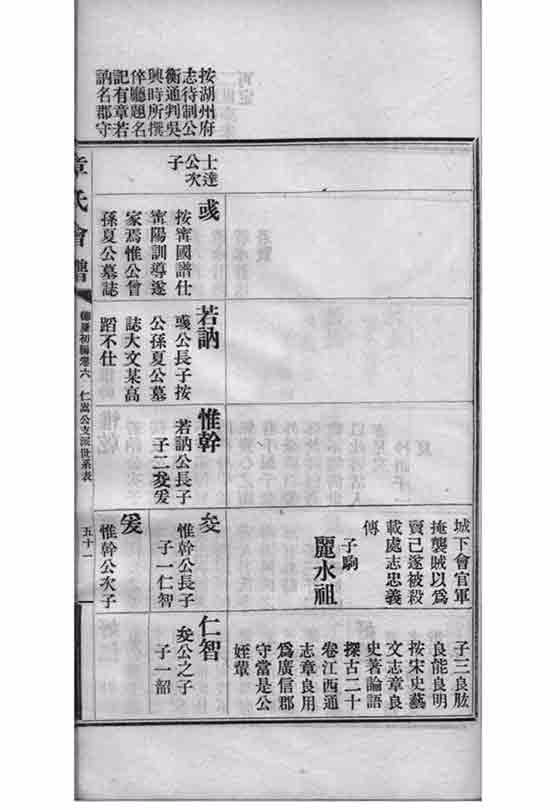 按湖州府
志待制公
衡通判吳
興時所撰
倅廳題名
記有章若
訥名郡守
士達
公次
子
彧
按甯國譜仕
甯陽訓導遂
家焉惟公曾
孫夏公墓誌
若訥
彧公長子按
公孫夏公墓
誌大文某高
蹈不仕
惟幹
若訥公長子
子二㚇爰
城下會官軍
掩襲賊以爲
賣己遂被殺
載處志忠義
傳
子駒
麗水祖
㚇
惟幹公長子
子一仁智
爰
惟幹公次子
子三良肱
良能良明
按宋史藝
文志章良
史著論語
探古二十
卷江西通
志章良用
爲廣信郡
守當是公
姪輩
仁智
㚇公之子
子一韶
章氏會譜
德慶初編卷六
仁嵩公支派世系表
五十一